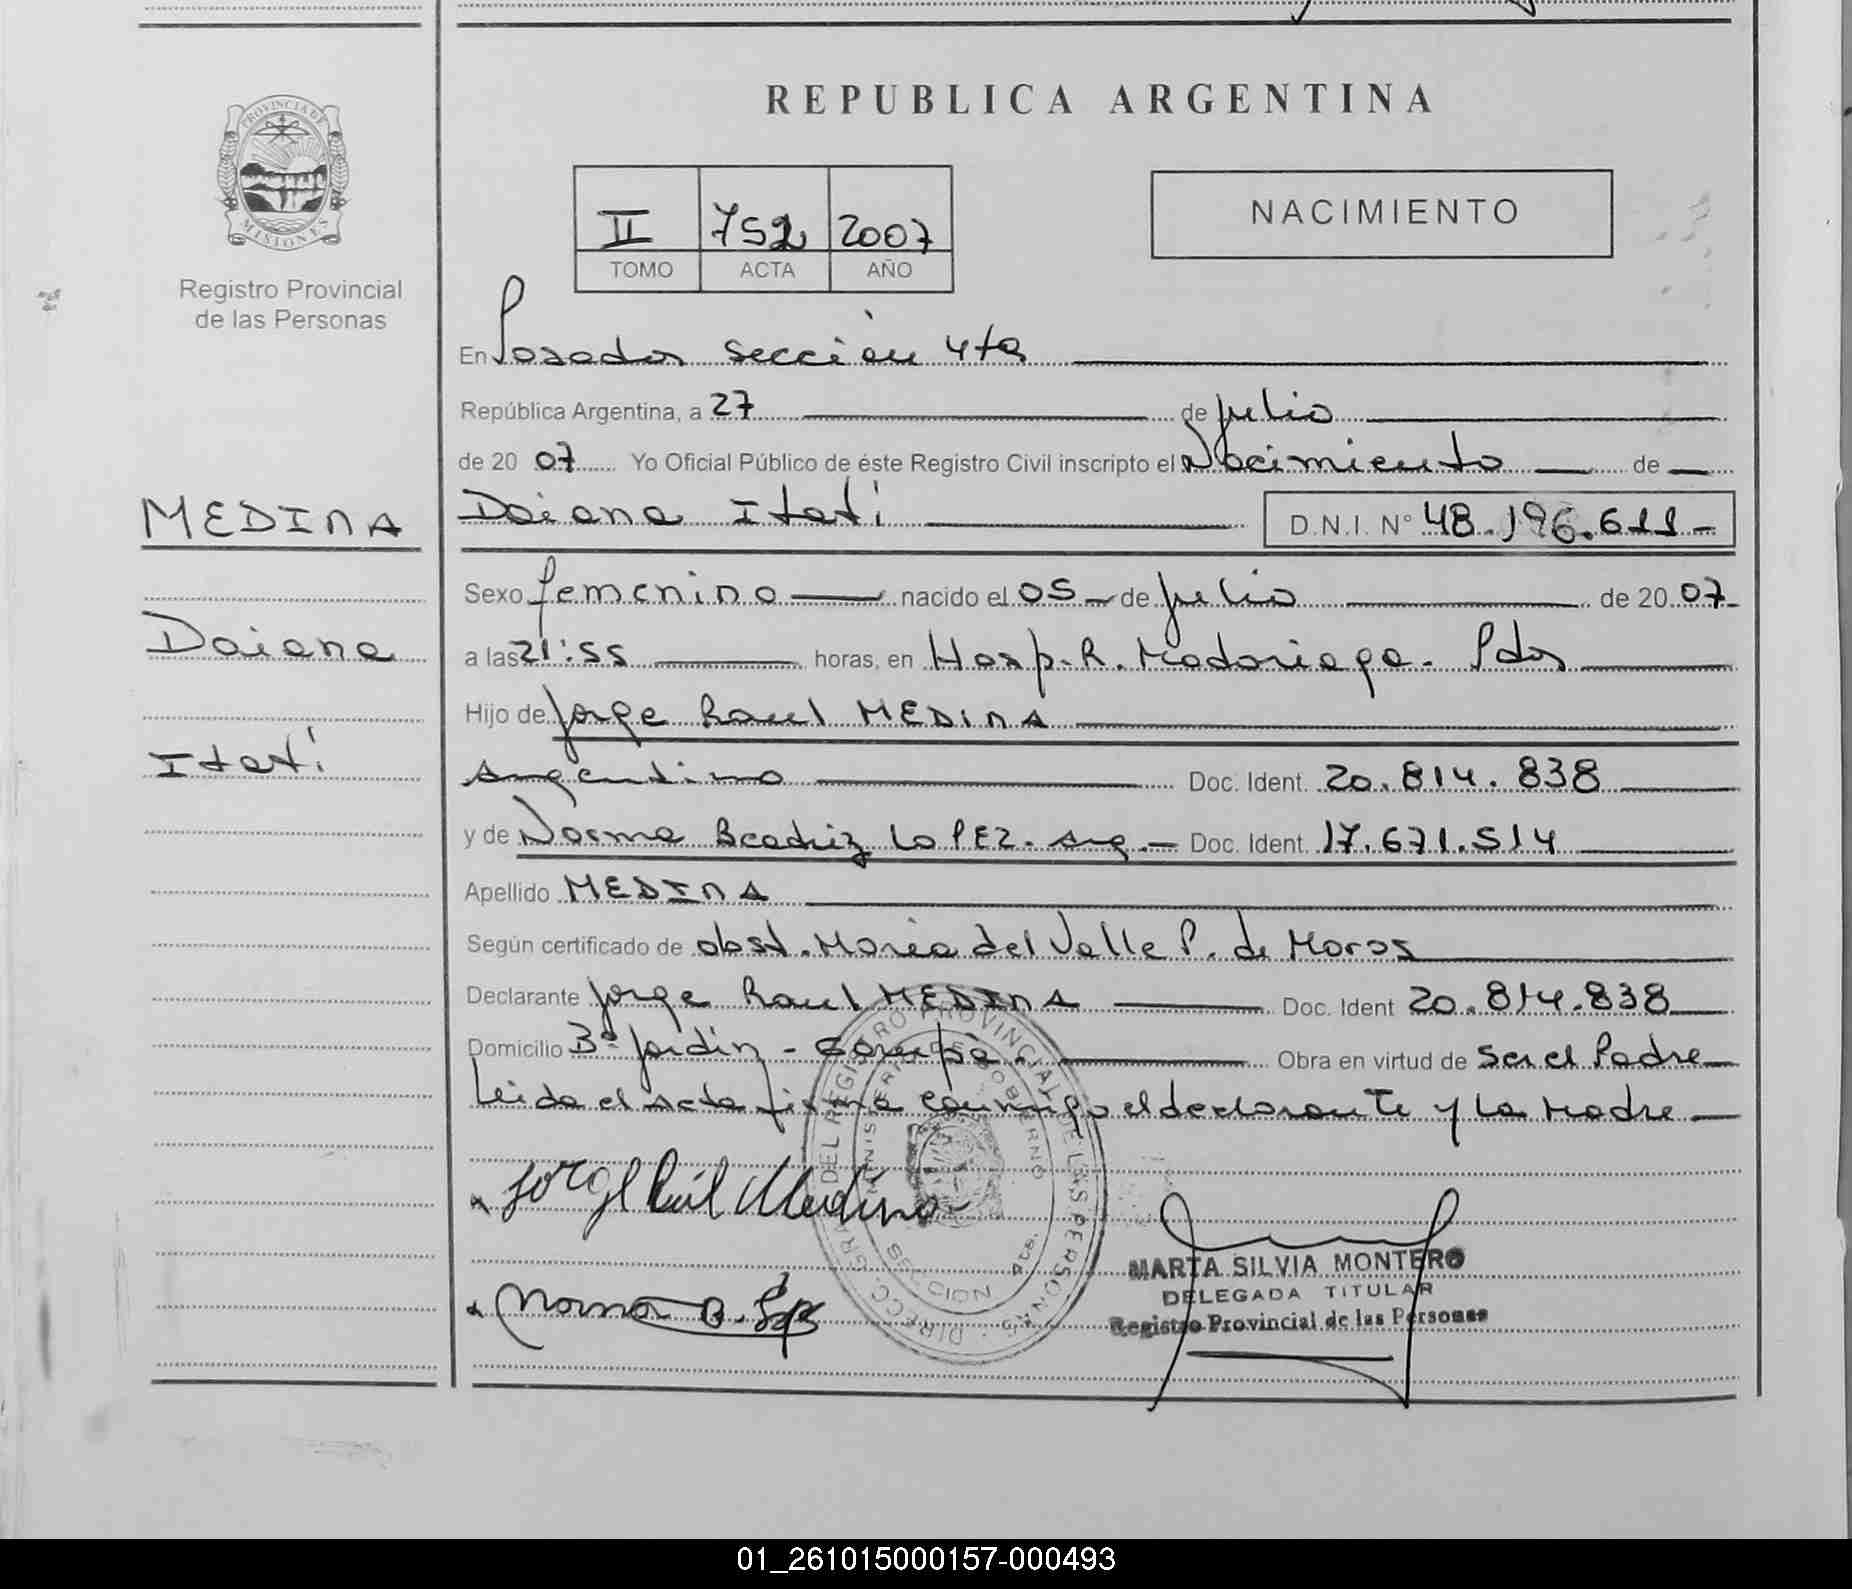 REPUBLICA ARGENTINA
PROVINCIA DE
MISIONES
Registro Provincial
de las Personas
II 752 2007
TOMO ACTA AÑO
NACIMIENTO
En Posadas Sección 4ta
República Argentina, a 27 de julio
de 20 07 Yo Oficial Público de éste Registro Civil inscripto el Nacimiento de
MEDINA
Daiana Itatí D.N.I. N° 48.196.611-
Sexo femenino nacido el 05 de julio de 20 07
Daiana
a las 21:55 horas, en Hosp. R. Madariaga. Pdas
Hijo de Jorge Raul MEDINA
Itatí
Argentino Doc. Ident. 20.814.838
y de Norma Beatriz LOPEZ. Arg. Doc. Ident. 17.671.514
Apellido MEDINA
Según certificado de obst. María del Valle P. de Moros
Declarante Jorge Raul MEDINA Doc. Ident 20.814.838
Domicilio B° Jardín - Garupá. Obra en virtud de Ser el Padre
Leida el Acta firma conmigo el declarante y la Madre
Jorge Raúl Medina
Norma B.
DIRECC. GRAL. DEL REGISTRO PROVINCIAL DE LAS PERSONAS
MINISTERIO DE GOBIERNO
SECCION 4ta.
MARTA SILVIA MONTERO
DELEGADA TITULAR
Registro Provincial de las Personas
01_261015000157-000493